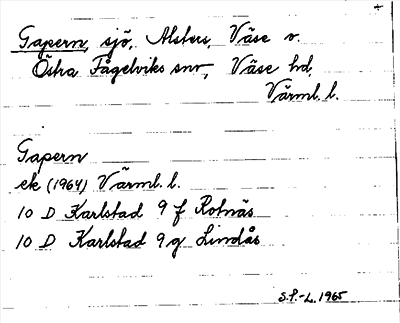 Gapern, sjö, Alsters, Väse o.
Östra Fågelviks snr, Väse hd,
Värml. l.
Gapern
ek (1964) Värml. l.
10 D Karlstad 9 f Rotnäs
10 D Karlstad 9 g Lindås
S.P.-L. 1965